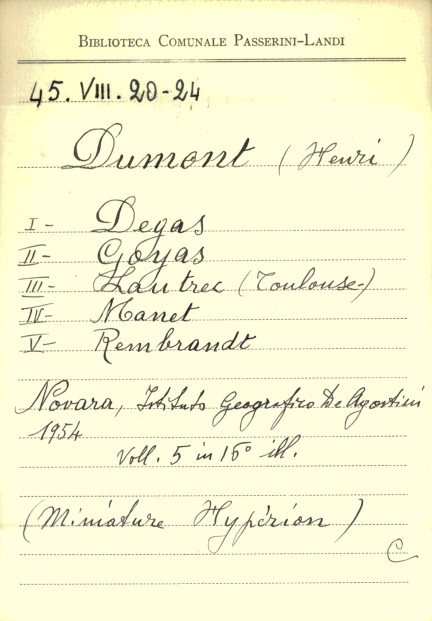 BIBLIOTECA COMUNALE PASSERINI-LANDI
45. VIII. 20-24
Dumont (Henri)
I- Degas
II- Goyas
III- Lautrec (Toulouse-)
IV- Manet
V- Rembrandt
Novara, Istituto Geografico De Agostini
1954
Voll. 5 in 16° ill.
(Miniature Hypérion)
C